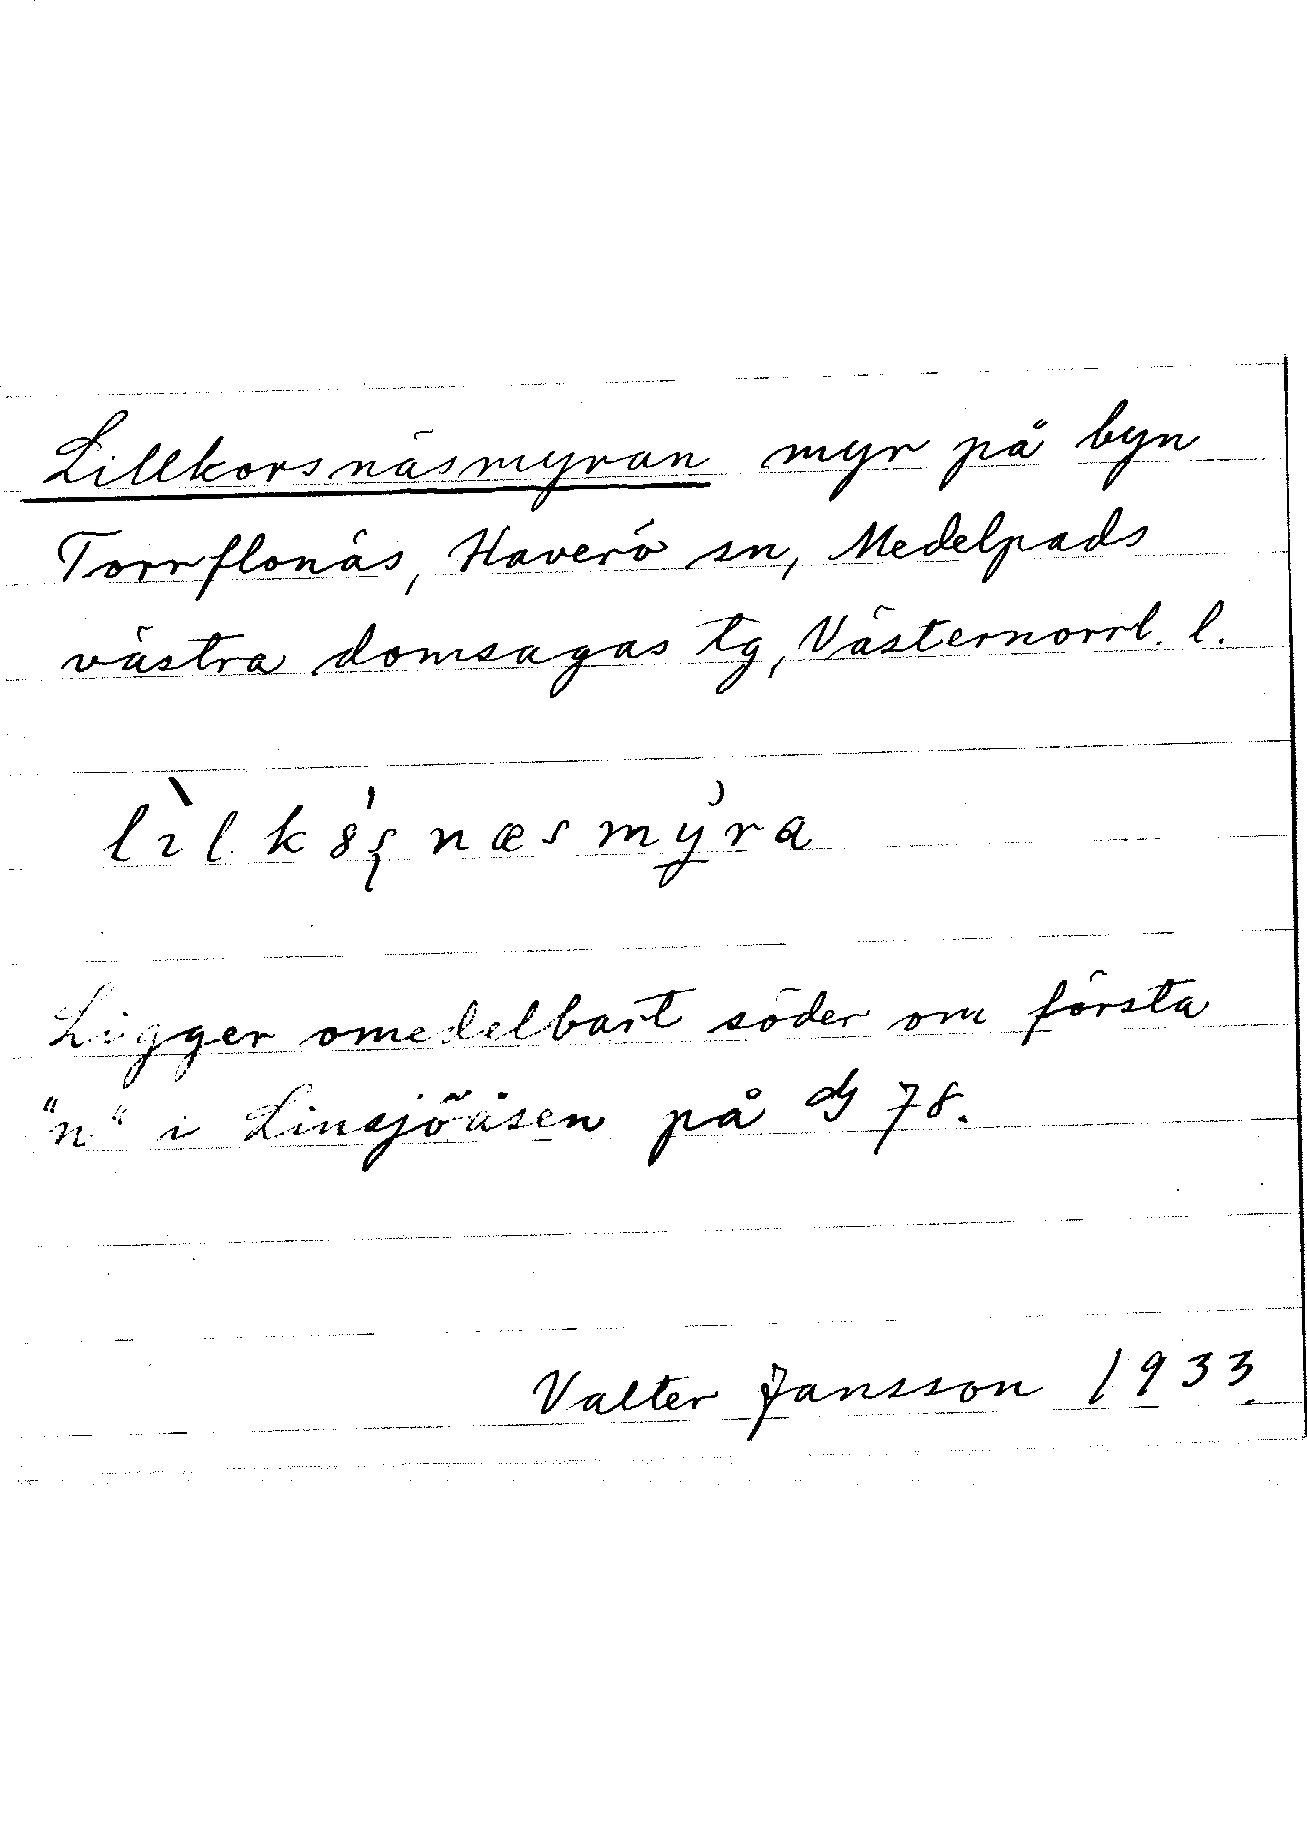 Lillkorsnäsmyran myr på byn
Torrflonäs, Haverö sn, Medelpads
västra domsagas tg, Västernorrl. l.
lìlkȣ́ʂnæsmy̲̓ra
Ligger omedelbart söder om första
"n" i Linsjöåsen på dj 78.
Valter Jansson 1933.